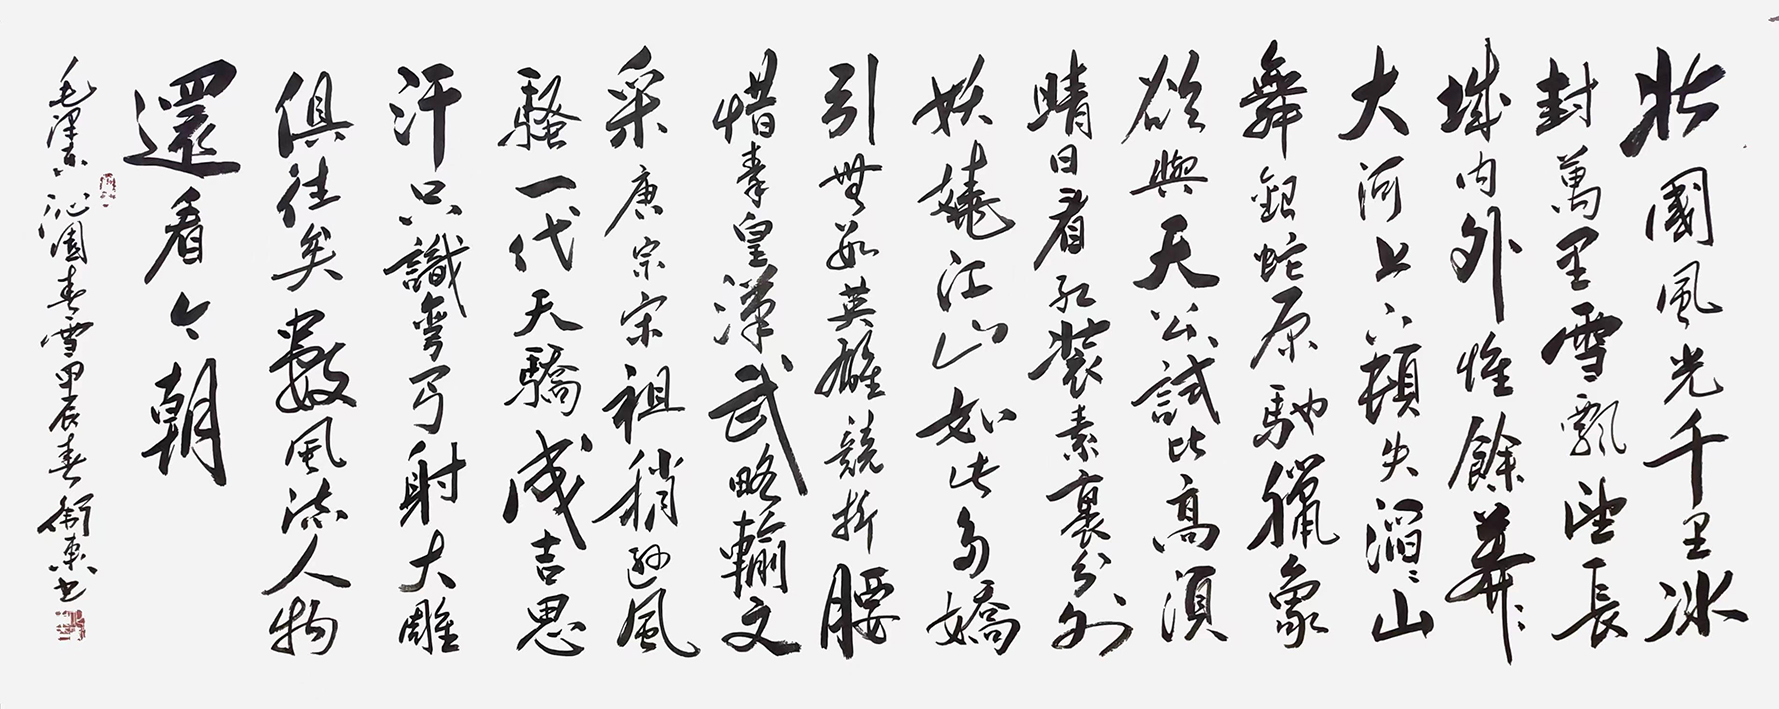 北國風光千里冰
封萬里雪飄望長
城内外惟餘莽々
大河上下頓失滔々山
舞銀蛇原馳臘象
欲與天公試比高須
晴日看紅裝素裹分外
妖嬈江山如此多嬌
引無數英雄競折腰
惜秦皇漢武略輸文
采唐宗宋祖稍遜風
騷一代天驕成吉思
汗只識彎弓射大雕
俱往矣數風流人物
還看今朝
毛澤東沁園春雪甲辰春衛東书